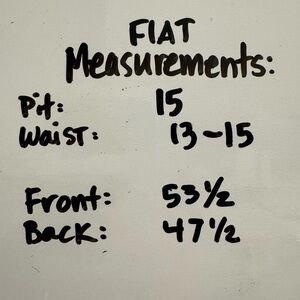 FIAT
Measurements:
Pit: 15
Waist: 13-15
Front: 53 1/2
Back: 47 1/2